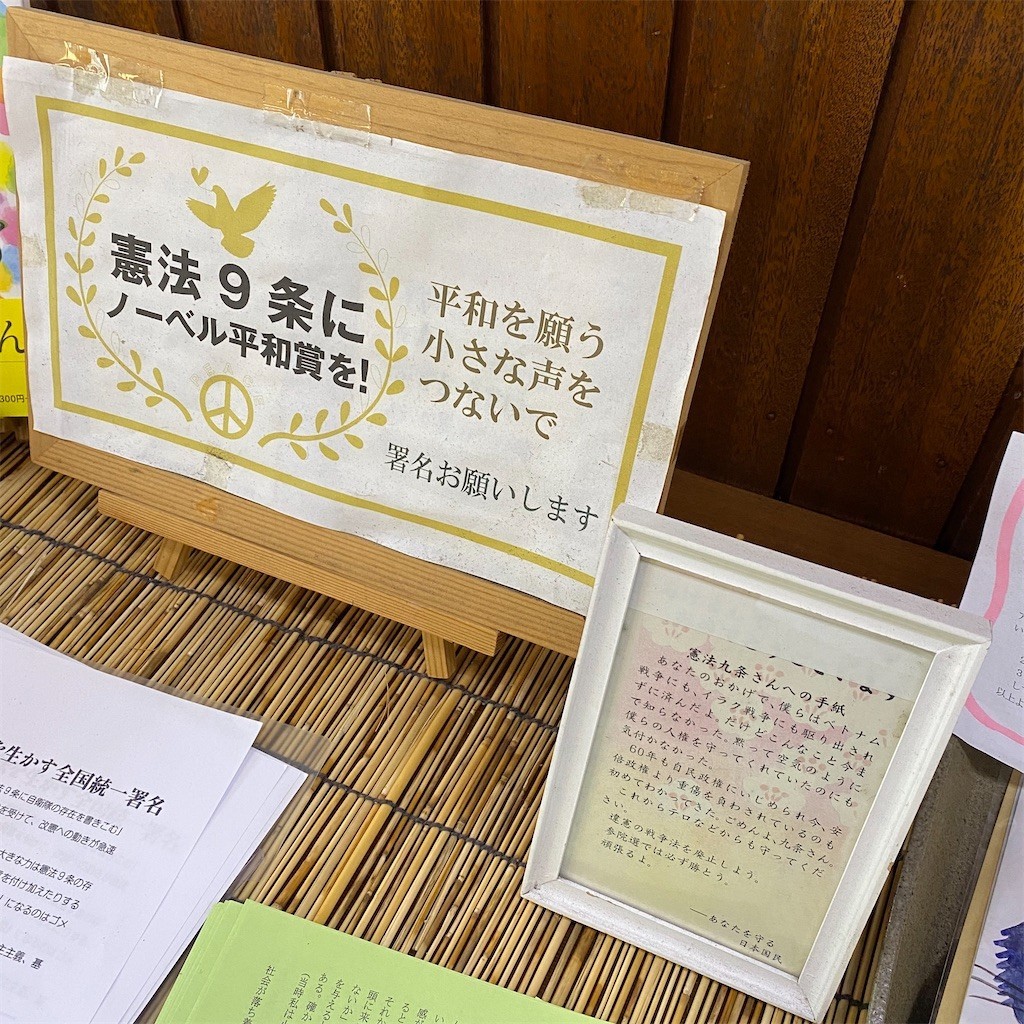 憲法9条に
ノーベル平和賞を!
平和を願う
小さな声を
つないで
署名お願いします
憲法九条さんへの手紙
あなたのおかげで、僕らはベトナム
戦争にも、イラク戦争にも駆り出され
ずに済んだよ。だけどこんなこと今ま
で知らなかった。黙って空気のように
僕らの人権を守ってくれていたのにも
気付かなかった。
60年も自民政権にいじめられ今、安
倍政権より重傷を負わされているのも
初めてわかってきた。ごめんよ、九条さん。
これからテロなどからも守ってくだ
さい。
違憲の戦争法を廃止しよう。
参院選では必ず勝とう。
頑張るよ。
──あなたを守る
日本国民
を生かす全国統一署名
法9条に自衛隊の存在を書きこむ」
を受けて、改憲への動きが急速
大きな力は憲法9条の存
を付け加えたりする
」になるのはゴメ
主主義、基
ん
300円
以上
ある。確か
(当時私は
社会が落ち着